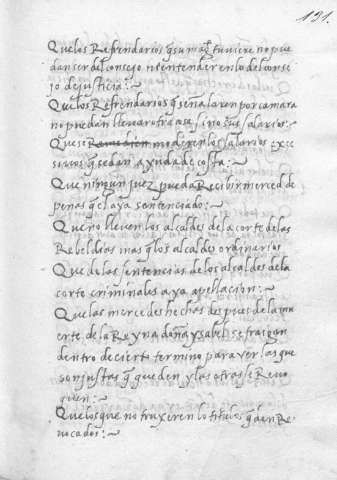 191.
Que los Refrendarios q su mag.t tuviere no pue
dan ser del consejo ni entender en lo del conse
jo de justicia:~
Que los Refrendarios q señalaren por camara
no puedan llevar otra cosa, sino sus salarios:~
Que se moderen los salarios exce
sivos q se dan a ayuda de costa:~
Que ningun juez pueda Recibir merced de
penas q el aya sentenciado:~
Que no lleven los alcaldes de la corte de las
Rebeldias mas q los alcaldes ordinarios
Que de las sentencias de los alcaldes de la
corte criminales aya apellacion:~
Que las mercedes hechas despues de la mu
erte de la Reyna doña ysabel, se traigan
dentro de cierto termino para ver las que
son justas q queden y las otras se Revo
quen:~
Que los que no truxeren los titulos q den Re
vocados:~